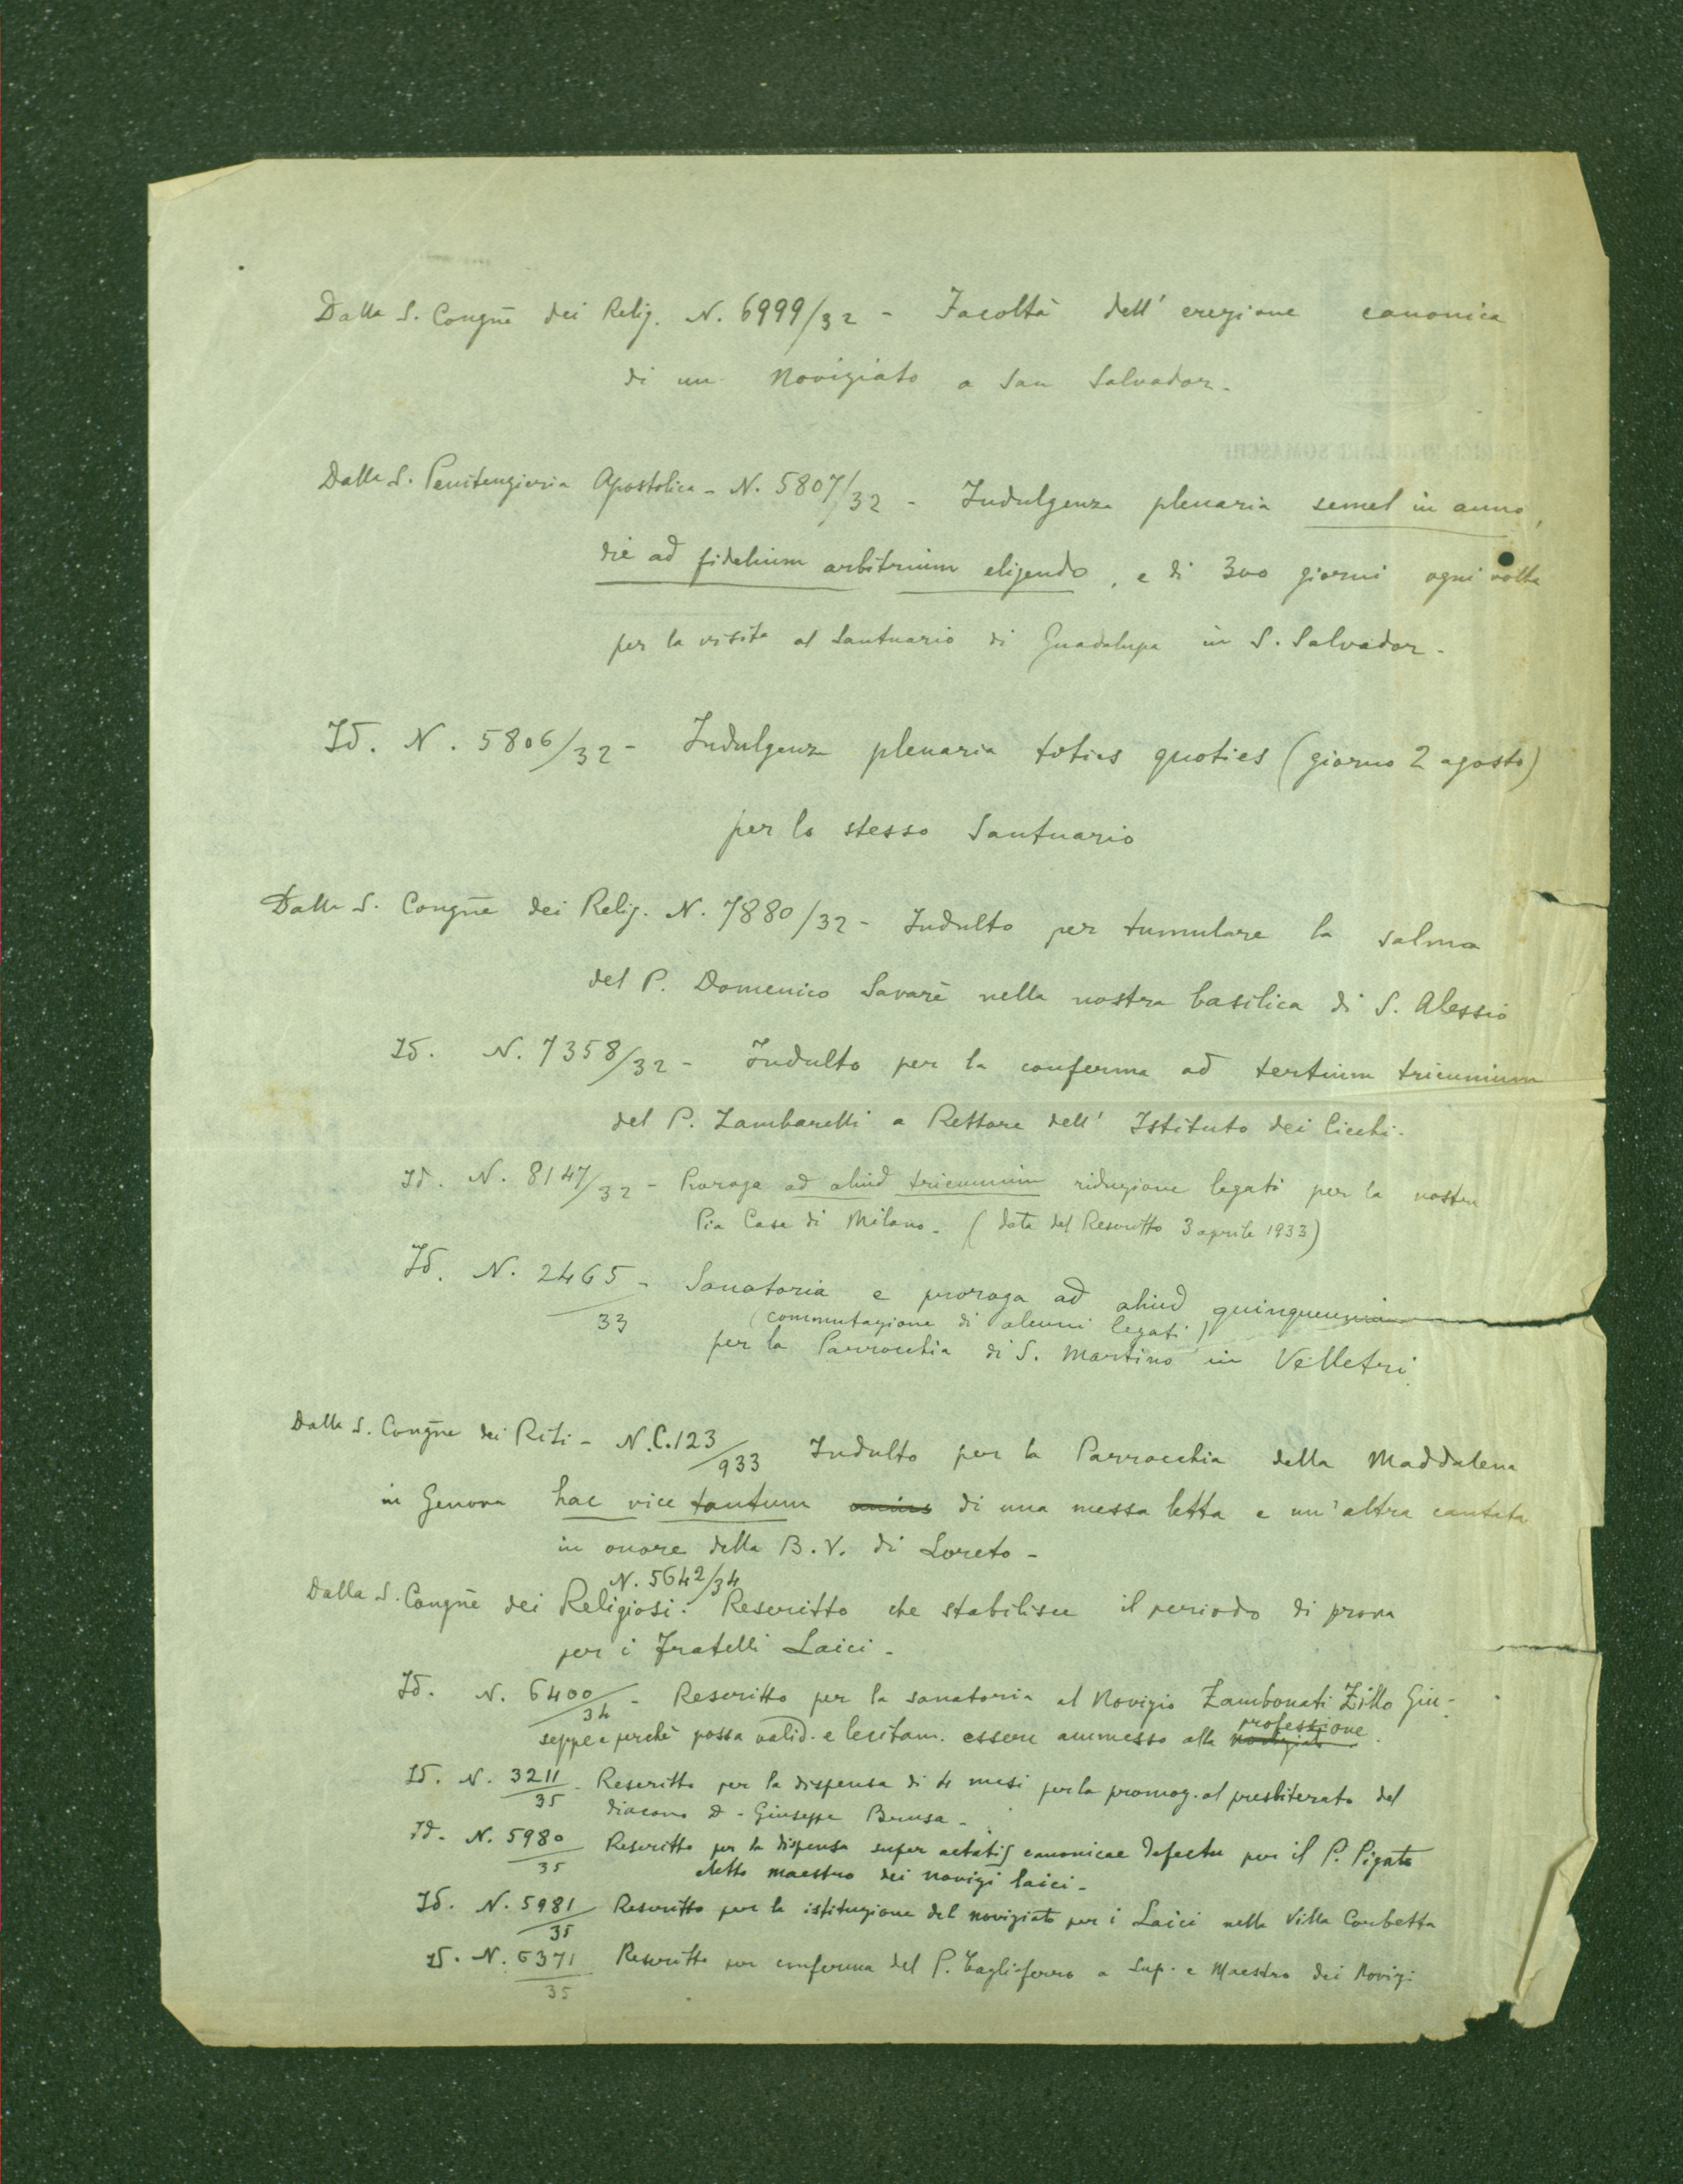 Dalla S. Congne dei Relig. N. 6999/32 - Facoltà dell' erezione canonica
di un Noviziato a San Salvador.
Dalla S. Penitenzieria Apostolica - N. 5807/32 - Indulgenza plenaria semel in anno,
die ad fidelium arbitrium eligendo, e di 300 giorni ogni volta
per la visita al Santuario di Guadalupa in S. Salvador.
Id. N. 5806/32 - Indulgenza plenaria toties quoties (giorno 2 agosto)
per lo stesso Santuario
Dalla S. Congne dei Relig. N. 7880/32 - Indulto per tumulare la salma
del P. Domenico Savarè nella nostra basilica di S. Alessio
Id. N. 7358/32 - Indulto per la conferma ad tertium triennium
del P. Zambarelli a Rettore dell' Istituto dei Ciechi.
Id. N. 8147/32 - Proroga ad aliud triennium riduzione legati per la nostra
Pia Casa di Milano. (data del Rescritto 3 aprile 1933)
Id. N. 2465/33 - Sanatoria e proroga ad aliud quinquennium
(commutazione di alcuni legati)
per la Parrocchia di S. Martino in Velletri
Dalla S. Congne dei Riti - N.C.123/933 Indulto per la Parrocchia della Maddalena
in Genova hac vice tantum di una messa letta e un'altra cantata
in onore della B.V. di Loreto -
N. 5642/34
Dalla S. Congne dei Religiosi: Rescritto che stabilisce il periodo di prova
per i Fratelli Laici -
Id. N. 6400/34 - Rescritto per la sanatoria al Novizio Zambonati Zillo Giu-
professione
seppe e perchè possa valid. e lecitam. essere ammesso alla noviziato.
Id. N. 3211/35 - Rescritto per la dispensa di 4 mesi per la promoz. al presbiterato del
diacono D. Giuseppe Brusa -
Id. N. 5980/35 Rescritto per la dispensa super aetatis canonicae defectu per il P. Pigato
eletto maestro dei novizi laici -
Id. N. 5981/35 Rescritto per la istituzione del noviziato per i Laici nella Villa Corbetta
Id. N. 6371/35 Rescritto per conferma del P. Tagliaferro a Sup. e Maestro dei Novizi